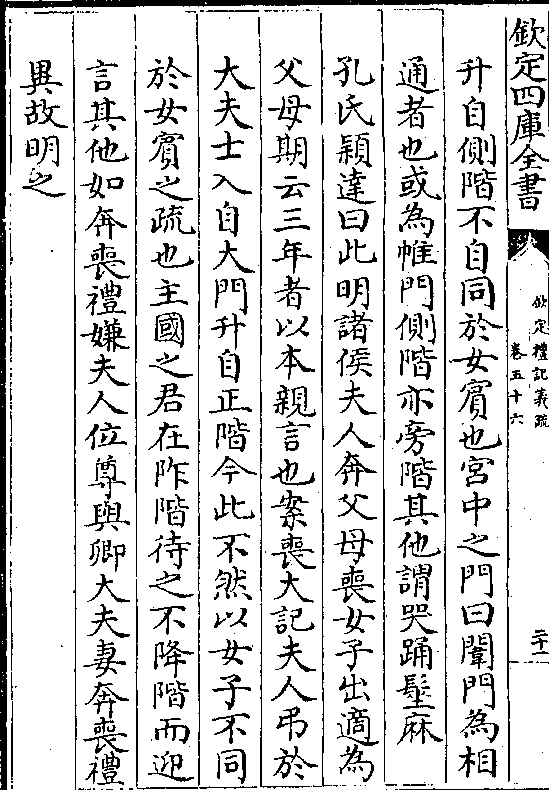 欽定四庫全書
欽定禮記義疏
卷五十六
二十
升自側階不自同於女賓也宮中之門曰闈門為相
通者也或為帷門側階亦旁階其他謂哭踊髽麻
孔氏穎達曰此明諸侯夫人奔父母喪女子出適為
父母期云三年者以本親言也案喪大記夫人弔於
大夫士入自大門升自正階今此不然以女子不同
於女賓之疏也主國之君在阼階待之不降階而迎
言其他如奔喪禮嫌夫人位尊與卿大夫妻奔喪禮
異故明之